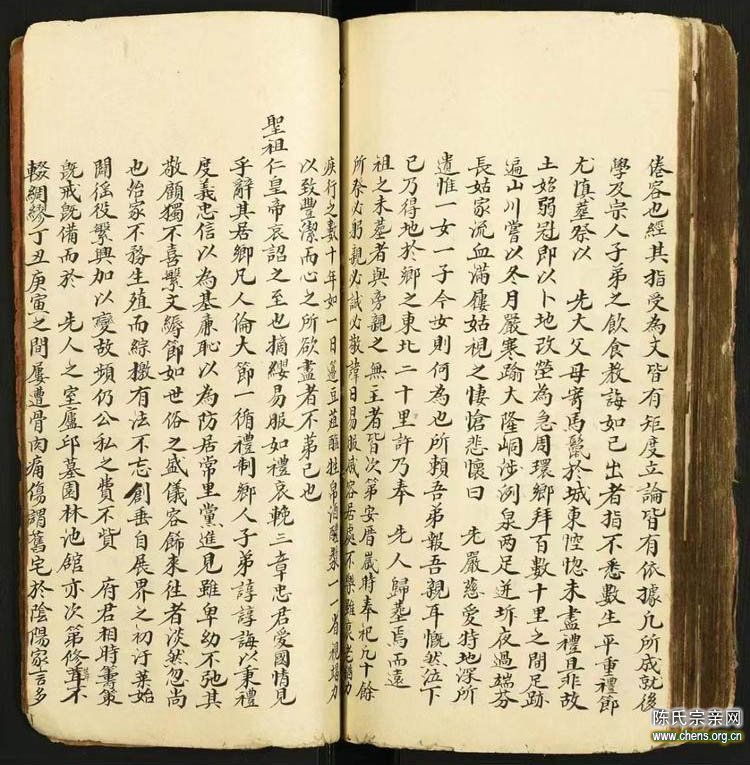 倦客也經其指受為文皆有矩度立論皆有依據凡所成就後
學及宗人子弟之飲食教誨如己出者指不悉數生平重禮節
尤慎葬祭以 先大父母寄馬鬣於城東悾惚未盡禮且非故
土始弱冠即以卜地改塋為急周環鄉拜百數十里之間足跡
遍山川嘗以冬月嚴寒踰大隆峒涉洌泉兩足迸坼夜過端芬
長姑家流血滿屨姑視之悽愴悲懷曰 先嚴慈愛特地深所
遺惟一女一子今女則何為也所賴吾弟報吾親耳慨然泣下
已乃得地於鄉之東北二十里許乃奉 先人歸塟焉而遠
祖之未墓者與旁親之無主者皆次第安厝歲時奉祀凡十餘
所祭必躬親必誠必敬諱日易服減容居處不樂雖衰老
疾行之數十年如一日籩豆葅醢牲帛酒醴粢一一省視竭力
以致豐潔而心之所欲盡者不第已也
聖祖仁皇帝哀詔之至也摘纓易服如禮哀輓三章忠君愛國情見
乎辭其居鄉凡人倫大節一循禮制鄉人子弟諄諄誨以秉禮
度義忠信以為基廉恥以為防居常里黨進見雖卑幼不弛其
敬顧獨不喜繫文縟節如世俗之盛儀容飾來往者淡然忽尚
也怡家不務生殖而綜檄有法不忘創垂自展界之初汙萊始
闢徭役繫興加以變故頻仍公私之費不貲 府君相時籌策
既戒既備而於 先人之室廬邱墓園林池館亦次第修葺不
輟綢繆丁丑庚寅之間屢遭骨肉痛傷謂舊宅於陰陽家言多
陈氏宗亲网
www.chens.org.cn